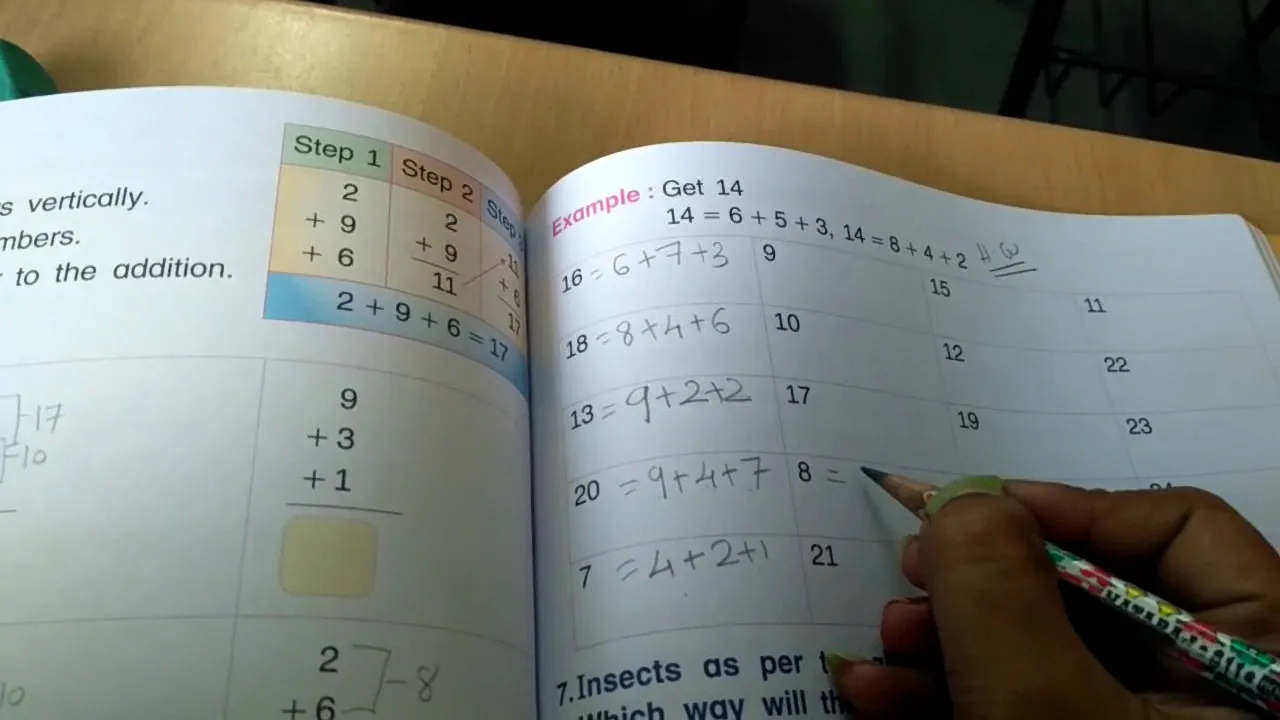 s vertically.
mbers.
to the addition.
Step 1
2
+ 9
+ 6
Step 2
2
+ 9
11
Step
11
+ 6
17
2 + 9 + 6 = 17
-17
=10
9
+ 3
+ 1
2
+ 6
-8
10
Example : Get 14
14 = 6 + 5 + 3, 14 = 8 + 4 + 2 H W
16 = 6+7+3
9
15
11
18 = 8+4+6
10
12
22
13 = 9+2+2
17
19
23
20 = 9+4+7
8 =
7 = 4+2+1
21
7. Insects as per
Which way will th